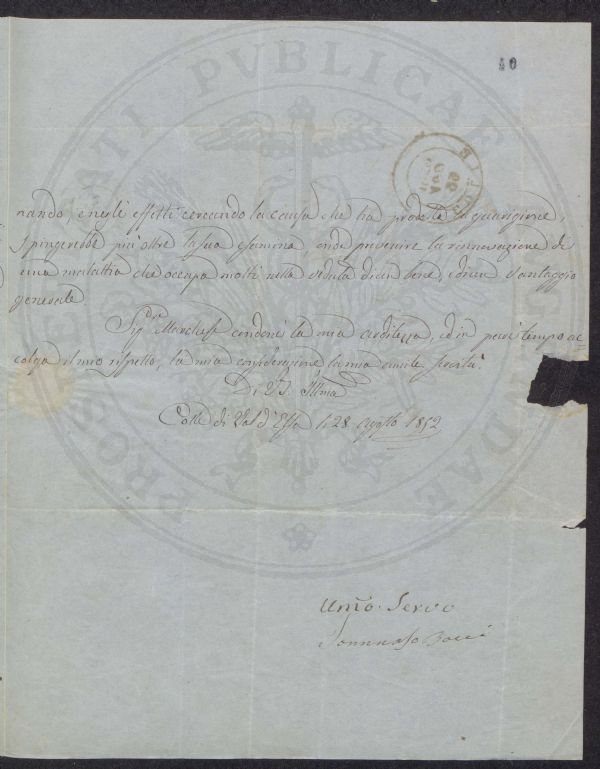 40
PROSPERITATI PVBLICAE AVGENDAE
nando, e negli effetti cercando la causa che ha prodotto la guarigione,
spingerebbe più oltre la sua esamina, onde prevenire la rinnovazione di
una malattia che occupa molti nella veduta di un bene, e di un vantaggio
generale.
Sigr. Marchese condoni la mia arditezza, ed in pari tempo ac=
colga il mio rispetto, la mia considerazione la mia umile servitù.
Di V.S. Illma
Colle di Val d'Elsa li 28 Agosto 1852
Umo. Servo
Tommaso Bocci